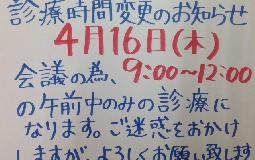 診療時間変更のお知らせ
4月16日(木)
会議の為、9:00~12:00
の午前中のみの診療に
なります。ご迷惑をおかけ
しますが、よろしくお願い致します